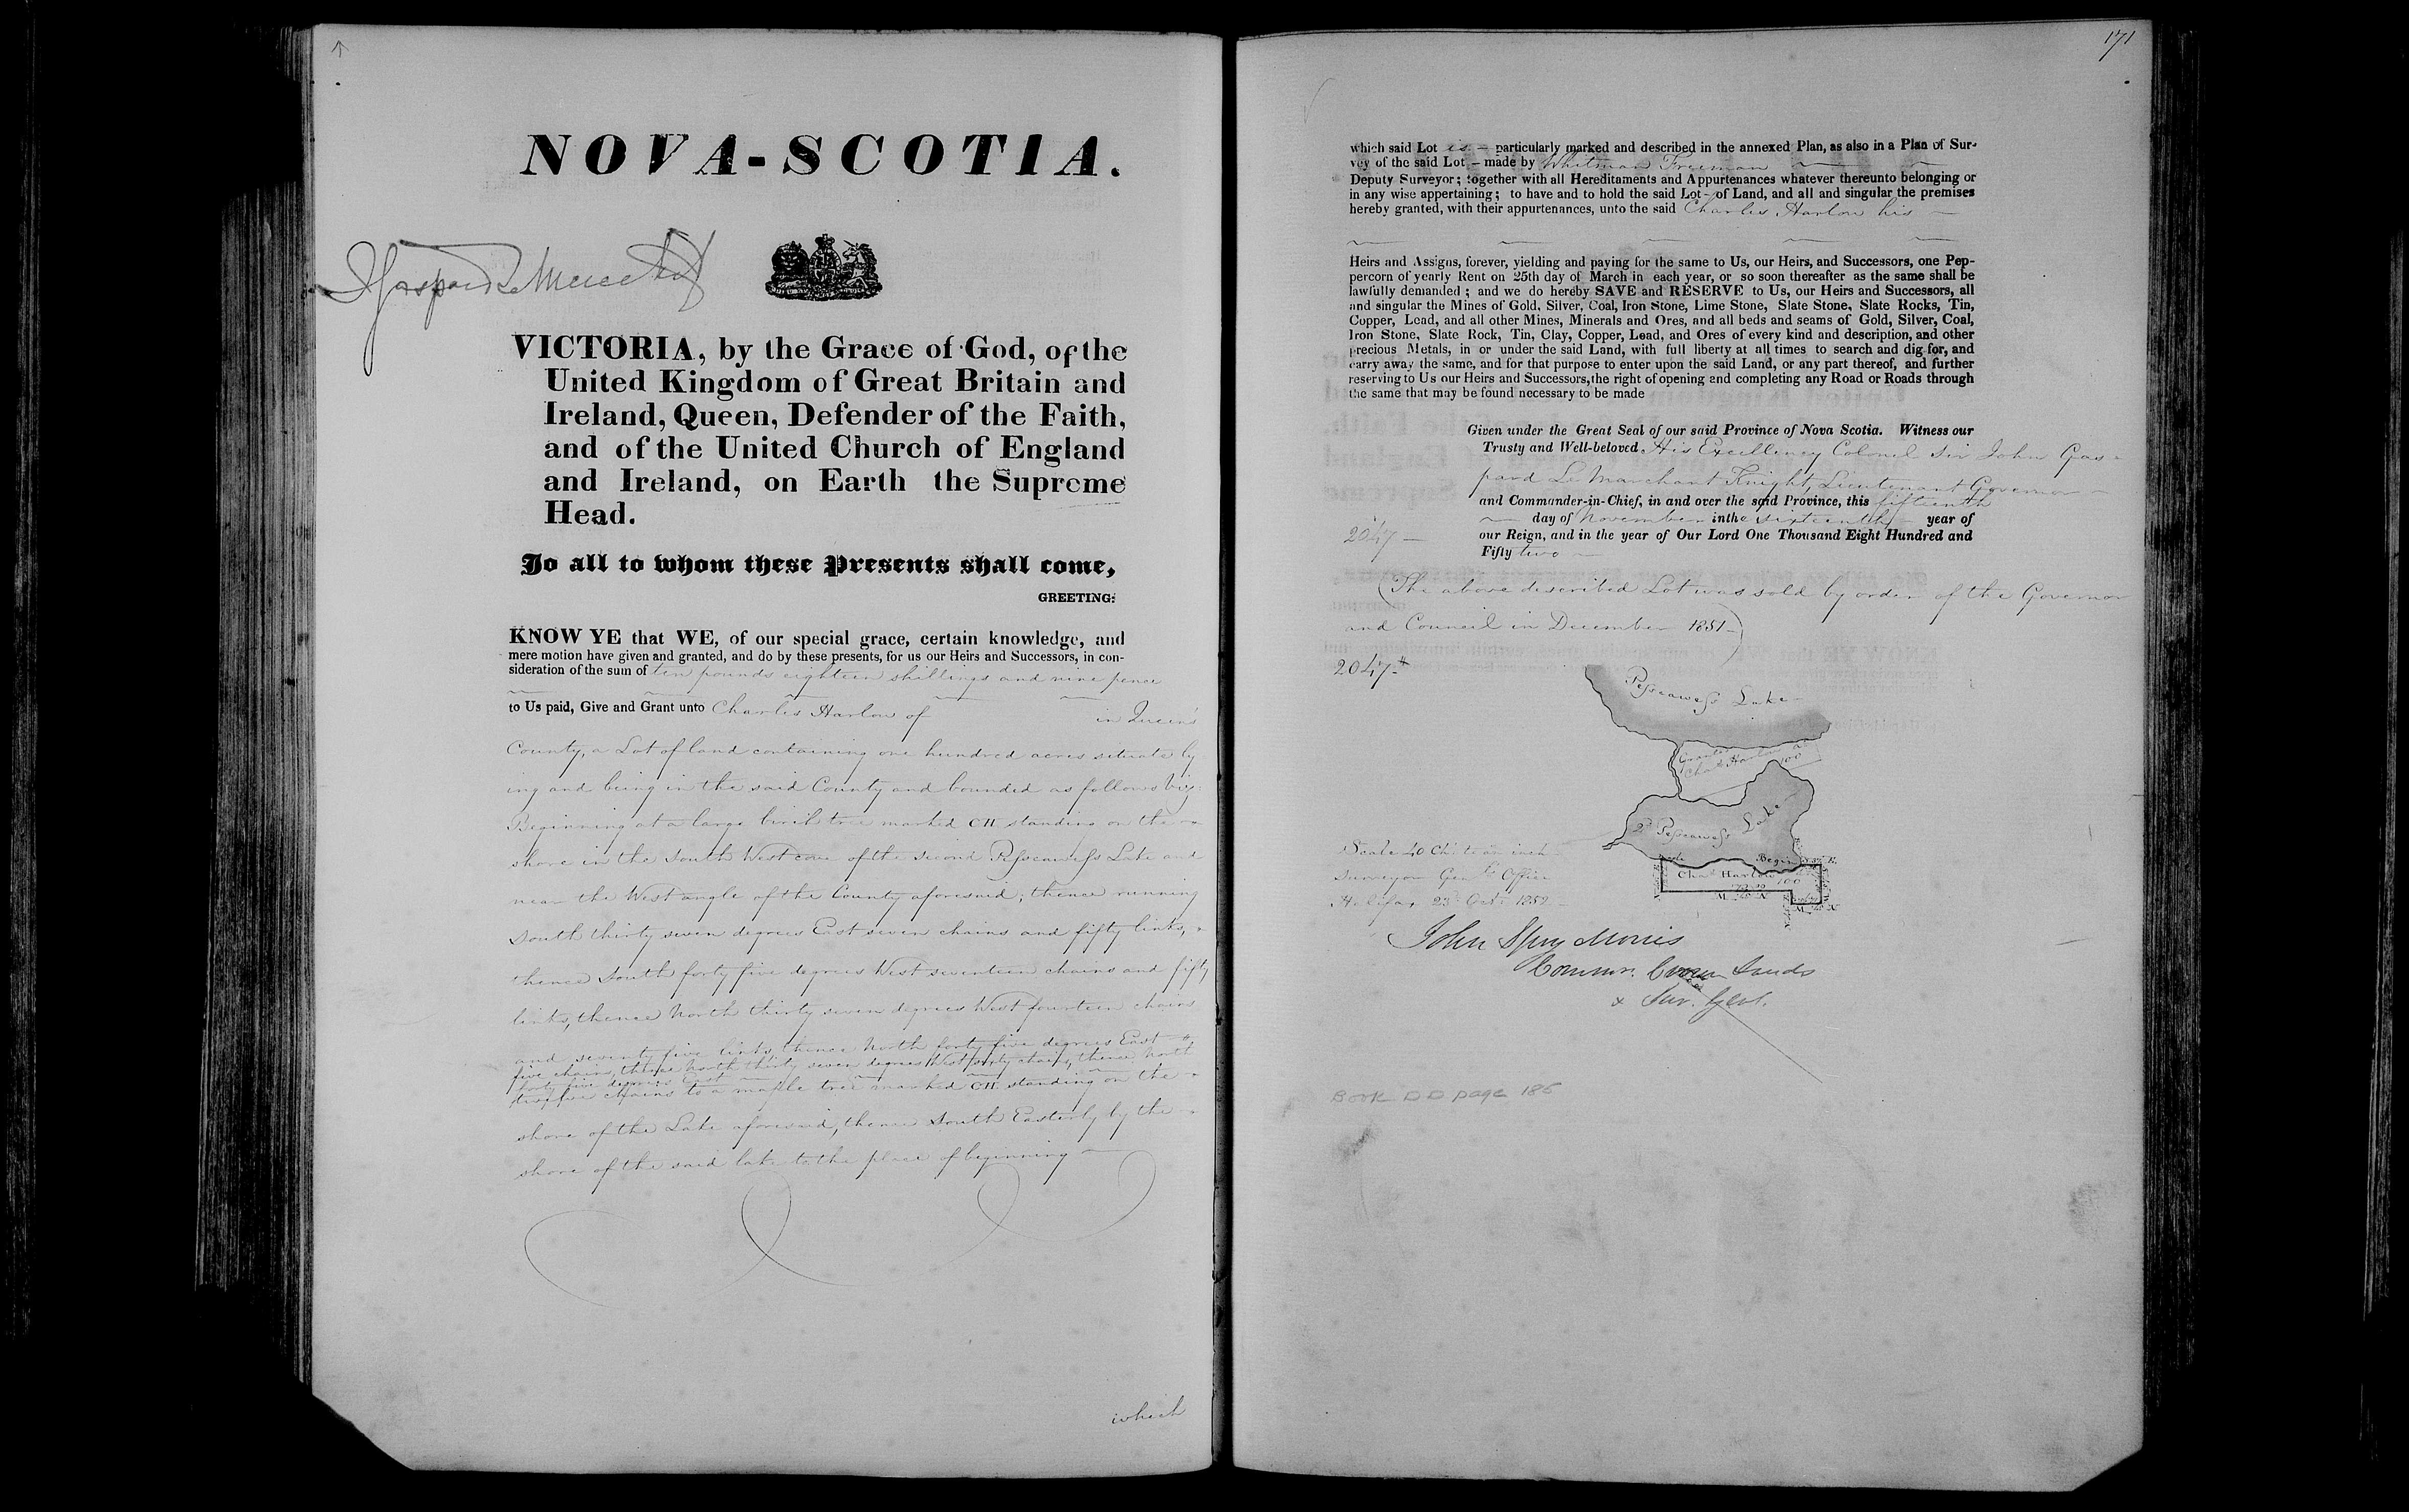 NOVA-SCOTIA.
VICTORIA, by the Grace of God, of the
United Kingdom of Great Britain and
Ireland, Queen, Defender of the Faith,
and of the United Church of England
and Ireland, on Earth the Supreme
Head.
To all to whom these Presents shall come,
GREETING:
KNOW YE that WE, of our special grace, certain knowledge, and
mere motion have given and granted, and do by these presents, for us our Heirs and Successors, in con-
sideration of the sum of ten pounds eighteen shillings and nine pence
to Us paid, Give and Grant unto Charles Harlow of in Queen's
County, a Lot of land containing one hundred acres situate ly
ing and being in the said County and bounded as follows Viz.
Beginning at a large birch tree marked CH standing on the
shore in the South West cove of the second Pesscawess Lake and
near the West angle of the County aforesaid; thence running
South thirty seven degrees East seven chains and fifty links,
thence South forty five degrees West seventeen chains and fifty
links, thence North thirty seven degrees West fourteen chains
and seventy five links, thence North forty five degrees East
five chains, thence North thirty seven degrees West forty chains, thence North
forty five degrees East
chains to a maple tree marked CH standing on the
shore of the Lake aforesaid, thence South Easterly by the
shore of the said lake to the place of beginning
which
171
which said Lot is particularly marked and described in the annexed Plan, as also in a Plan of Sur-
vey of the said Lot - made by Whitman Freeman
Deputy Surveyor; together with all Hereditaments and Appurtenances whatever thereunto belonging or
in any wise appertaining; to have and to hold the said Lot - of Land, and all and singular the premises
hereby granted, with their appurtenances, unto the said Charles Harlow his
Heirs and Assigns, forever, yielding and paying for the same to Us, our Heirs, and Successors, one Pep-
percorn of yearly Rent on 25th day of March in each year, or so soon thereafter as the same shall be
lawfully demanded; and we do hereby SAVE and RESERVE to Us, our Heirs and Successors, all
and singular the Mines of Gold, Silver, Coal, Iron Stone, Lime Stone, Slate Stone, Slate Rocks, Tin,
Copper, Lead, and all other Mines, Minerals and Ores, and all beds and seams of Gold, Silver, Coal,
Iron Stone, Slate Rock, Tin, Clay, Copper, Lead, and Ores of every kind and description, and other
precious Metals, in or under the said Land, with full liberty at all times to search and dig for, and
carry away the same, and for that purpose to enter upon the said Land, or any part thereof, and further
reserving to Us our Heirs and Successors, the right of opening and completing any Road or Roads through
the same that may be found necessary to be made
Given under the Great Seal of our said Province of Nova Scotia. Witness our
Trusty and Well-beloved His Excellency Colonel Sir John Gas-
pard Le Marchant Knight, Lieutenant Governor
and Commander-in-Chief, in and over the said Province, this fifteenth
day of November in the sixteenth year of
2047
our Reign, and in the year of Our Lord One Thousand Eight Hundred and
Fifty two
(The above described Lot was sold by order of the Governor
and Council in December 1851)
2047
Pesscawess Lake
Granted
Chas Harlow
100
2d Pesscawess Lake
Begin
Chas Harlow
100
Scale 40 Chs to an inch
Surveyor Genls Office
Halifax, 23d Octr 1852
John Spry Morris
Commr. Crown Lands
& Sur. Genl.
Book DD page 186